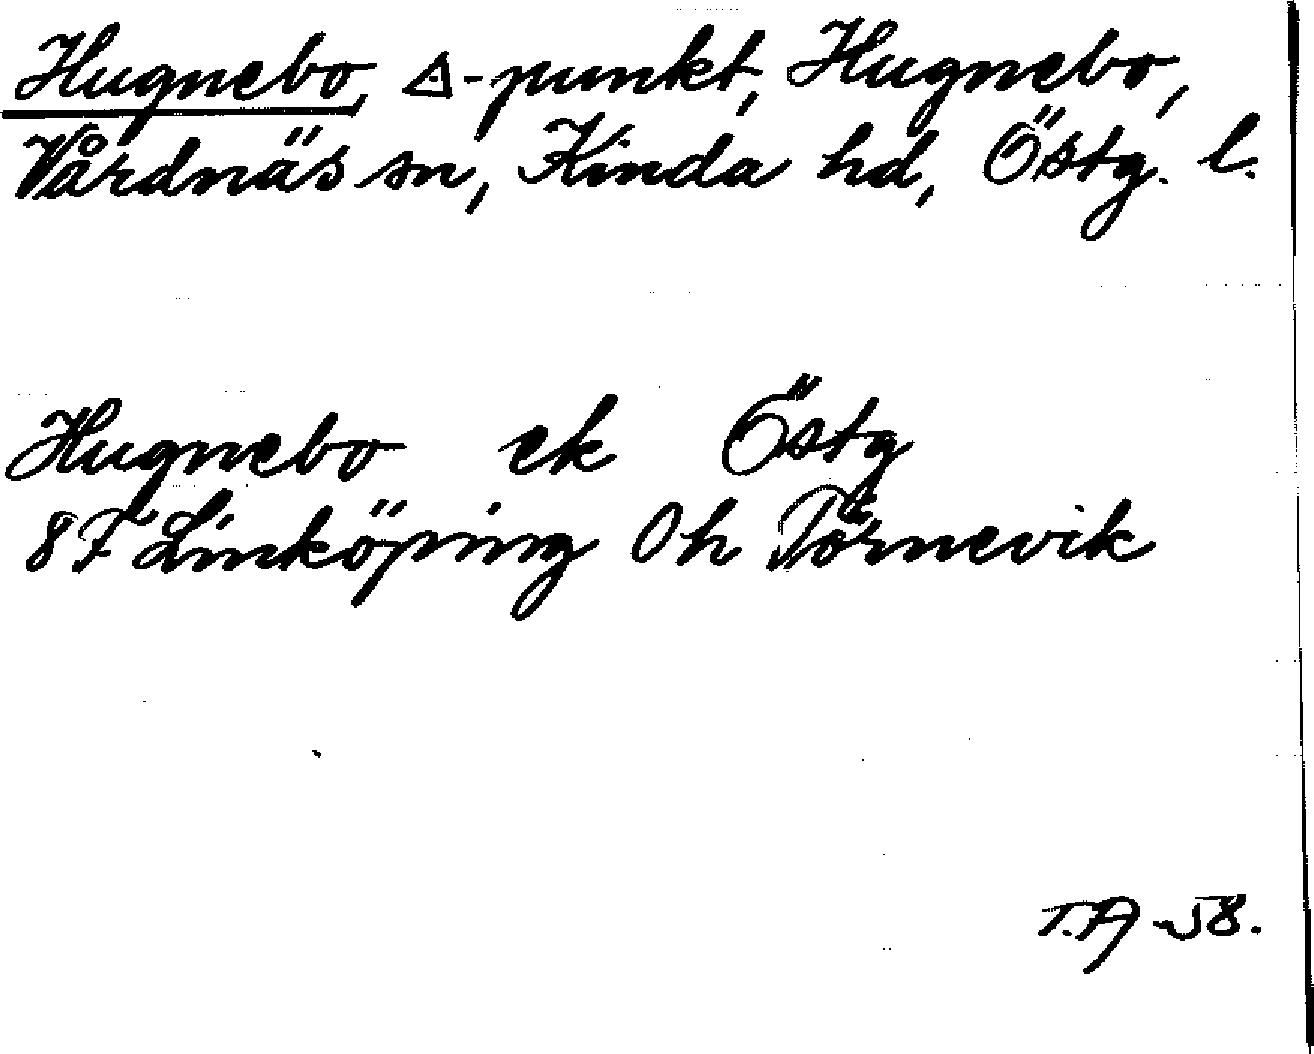 Hugnebo, △-punkt, Hugnebo,
Vårdnäs sn, Kinda hd, Östg. l.
Hugnebo ek Östg
8F Linköping 0h Törnevik
T.A-58.